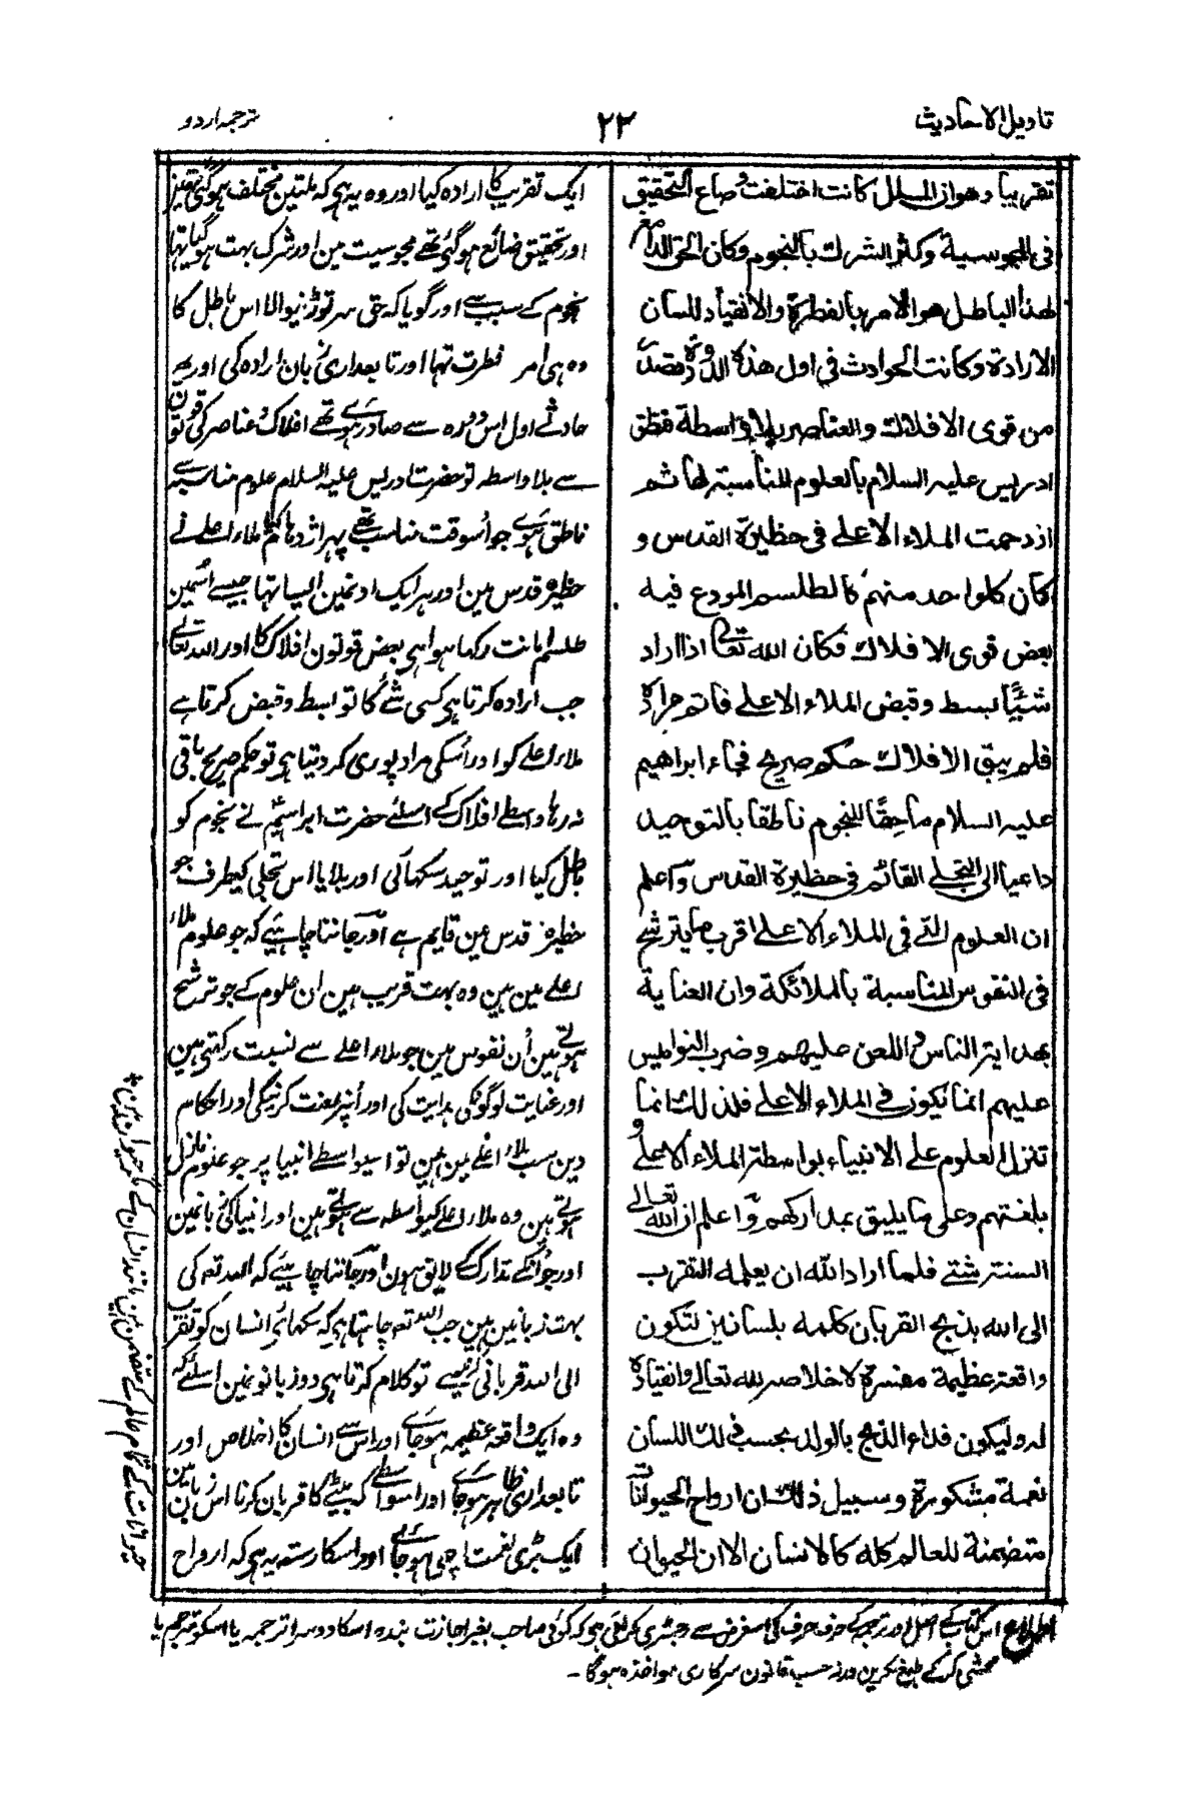 تاویل الاحادیث
۲۳
ترجمہ اردو
تقریبا وهو ان الملل كانت اختلفت وضاع التحقيق
فی المجوسية وكثر الشرك بالنجوم وكان الحق الدامغ
لهذا الباطل هو الامر بالفطرة والانقياد للسان
الارادة وكانت الحوادث فی اول هذه الدورة مقصد
من قوى الافلاك والعناصر بلا واسطة فنطق
ادریس عليه السلام بالعلوم المناسبة لها ثم
ازدحمت الملاء الاعلى فی حظيرة القدس و
كان كل واحد منهم كالطلسم المودع فيه
بعض قوى الافلاك فكان الله تعالى اذا اراد
شيئًا بسط وقبض الملاء الاعلى فاتم مراده
فلم يبق الافلاك حكم صريح فجاء ابراهيم
عليه السلام ماحقًا للنجوم ناطقا بالتوحيد
داعيا الى التجلی القائم فی حظيرة القدس واعلم
ان العلوم التی فی الملاء الاعلى اقرب ما يترشح
فی النفوس المناسبة بالملائكة وان العناية
بهداية الناس و اللعن عليهم وضرب النواميس
عليهم انما تكون فی الملاء الاعلى فلذلك انما
تنزل العلوم على الانبياء بواسطة الملاء الاعلى و
بلغتهم وعلى ما يليق بمداركهم واعلم ان الله تعالى
السنة شتى فلما اراد الله ان يعلمه التقرب
الى الله بذبح القربان كلمه بلسانين لتكون
واقعة عظيمة مفسرة لاخلاصه لله تعالى وانقياده
له وليكون فداء الذبح بالولد بحسب ذلك اللسان
نعمة مشكورة وسبيل ذلك ان ارواح الحيوانات
متضمنة للعالم كله كالانسان الا ان الحيوان
ایک تقریب کا ارادہ کیا اور وہ یہ ہی کہ ملتین مختلف ہوگئی تہین
اور تحقیق ضائع ہوگئی تھے مجوسیت مین اور شرک بہت ہوگیا تہا
نجوم کے سبب سے اور گویا کہ حق سر توڑنیوالا اس باطل کا
وہ ہی امر فطرت تہا اور تابعداری زبان ارادہ کی اور یہ
حادثے اول اس دورہ سے صادر ہوئے تھے افلاک و عناصر کی قوتون
سے بلا واسطہ تو حضرت ادریس علیہ السلام علوم مناسبہ سے
ناطق ہوئے جو اسوقت مناسب تھے پہر اژدہام کیا ملاء اعلے نے
حظیرہ قدس مین اور ہر ایک اونمین ایسا تہا جیسے اسمین
طلسم امانت رکہا ہوا ہی بعض قوتون افلاک کا اور اللہ تعالے
جب ارادہ کرتا ہی کسی شئے کا تو بسط و قبض کرتا ہے
ملاء اعلے کو اور اسکی مراد پوری کر دیتا ہی تو حکم صریح باقی
نہ رہا واسطے افلاک کے اسلئے حضرت ابراہیم نے نجوم کو
باطل کیا اور توحید سکہائی اور بلایا اس تجلی کیطرف جو
حظیرہ قدس مین قایم ہے اور جاننا چاہئیے کہ جو علوم ملاء
اعلے مین ہین وہ بہت قریب ہین ان علوم کے جو ترشح
ہوتے ہین اُن نفوس مین جو ملاء اعلے سے نسبت رکہتی ہین
اور عنایت لوگونکی ہدایت کی اور اُنپر لعنت کرنیکی اور احکام
دین سب ملاء اعلے مین ہین تو اسیواسطے انبیا پر جو علوم نازل
ہوتے ہین وہ ملاء اعلے کیواسطہ سے ہوتے ہین اور انبیا کی زبانمین
اور جو اُنکے مدارک کے لایق ہون اور جاننا چاہئیے کہ اللہ تعہ کی
بہت زبانین ہین جب اللہ تعہ چاہتا ہی کہ سکہائے انسان کو تقرب
الی اللہ قربانی کرنیسے تو کلام کرتا ہی دو زبانونمین اسلئے کہ
وہ ایک واقعہ عظیمہ ہوجائے اور اس سے انسان کا اخلاص اور
تابعداری ظاہر ہوجائے اور اسواسطے کہ بیٹے کا قربان کرنا اس زبان مین
ایک بڑی نعمت اچہی ہوجائے اور اسکا رستہ یہ ہی کہ ارواح
حیوانات کے تمام عالم کے متضمن ہین مانند انسان کے مگر حیوان مین
اطلاع اس کتاب کے اصل اور ترجمہ کے حرف حرف کی اس غرض سے رجسٹری کرائی ہی کہ کوئی صاحب بغیر اجازت بندہ اسکا دوسرا ترجمہ یا اسکو مترجم یا
محشی کرکے طبع نکرین ورنہ حسب قانون سرکاری مواخذہ ہوگا۔